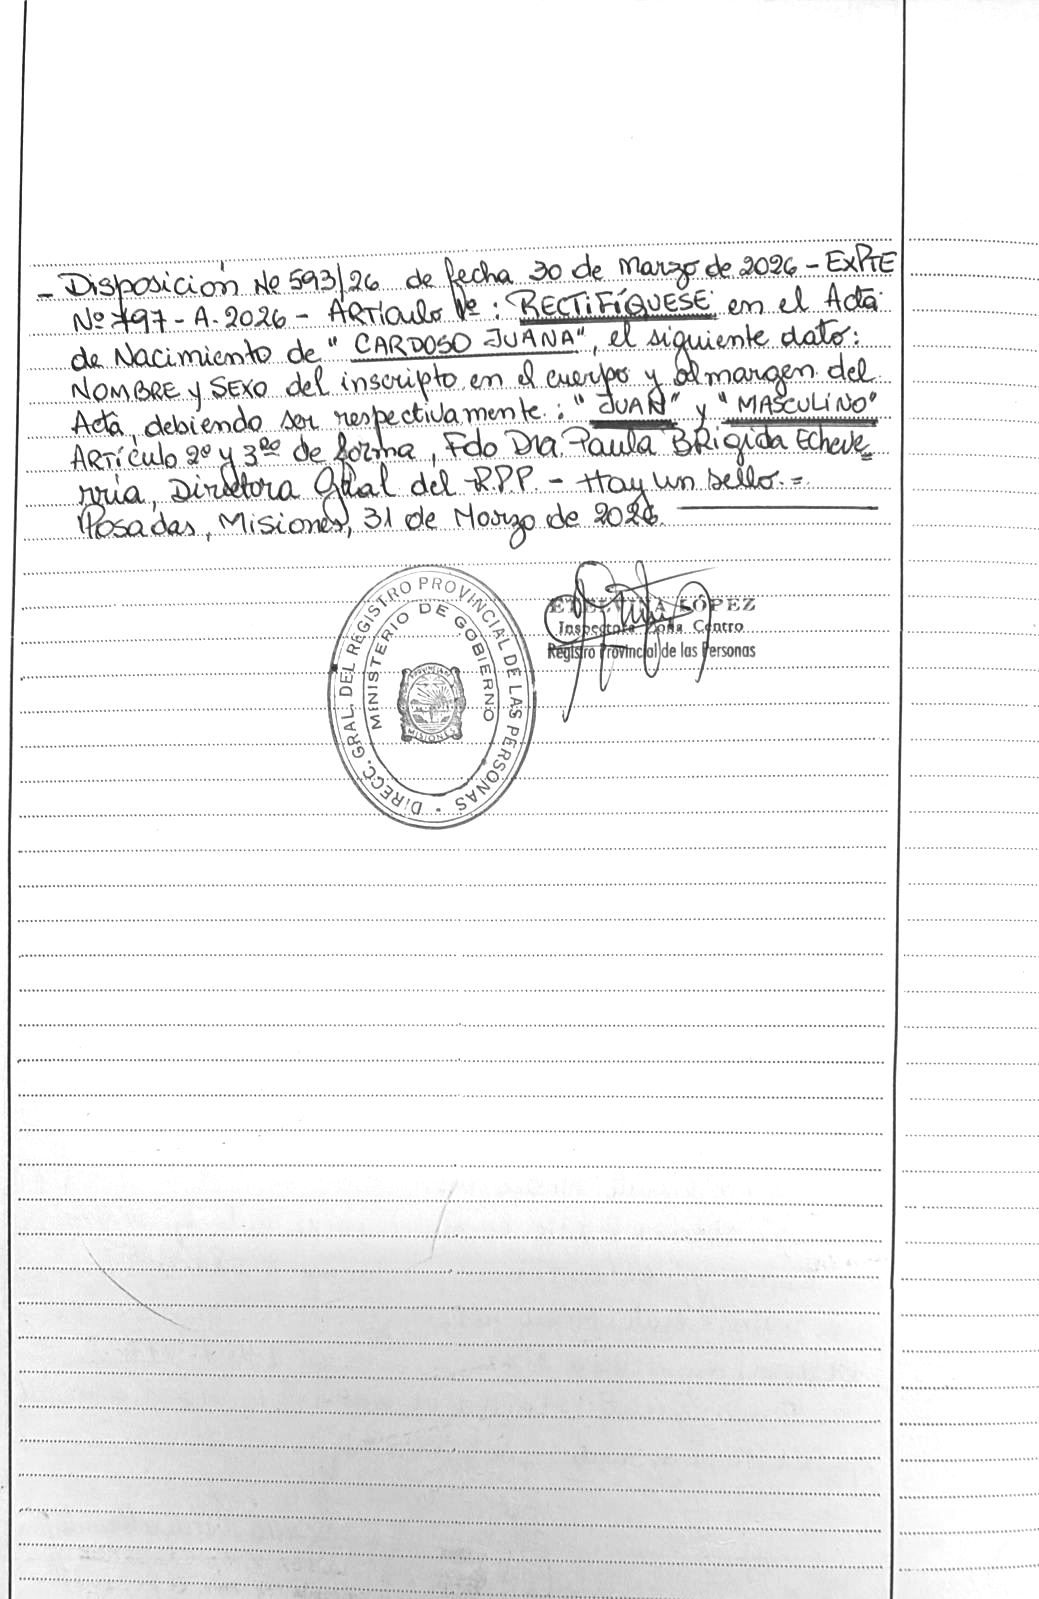 - Disposición Nº 593/26 de fecha 30 de Marzo de 2026 - EXPTE
Nº 797 - A - 2026 - ARTÍCULO 1º : RECTIFÍQUESE en el Acta
de Nacimiento de "CARDOSO JUANA", el siguiente dato:
NOMBRE y SEXO del inscripto en el cuerpo y al margen del
Acta, debiendo ser respectivamente: "JUAN" y "MASCULINO"
ARTÍCULO 2º y 3ero de forma, Fdo Dra. Paula BRígida Echeve
rria, Directora Gral del R.P.P. - Hay un sello. =
Posadas, Misiones, 31 de Marzo de 2026.
DIRECC. GRAL. DEL REGISTRO PROVINCIAL DE LAS PERSONAS
MINISTERIO DE GOBIERNO
MISIONES
LÓPEZ
Inspectora Zona Centro
Registro Provincial de las Personas